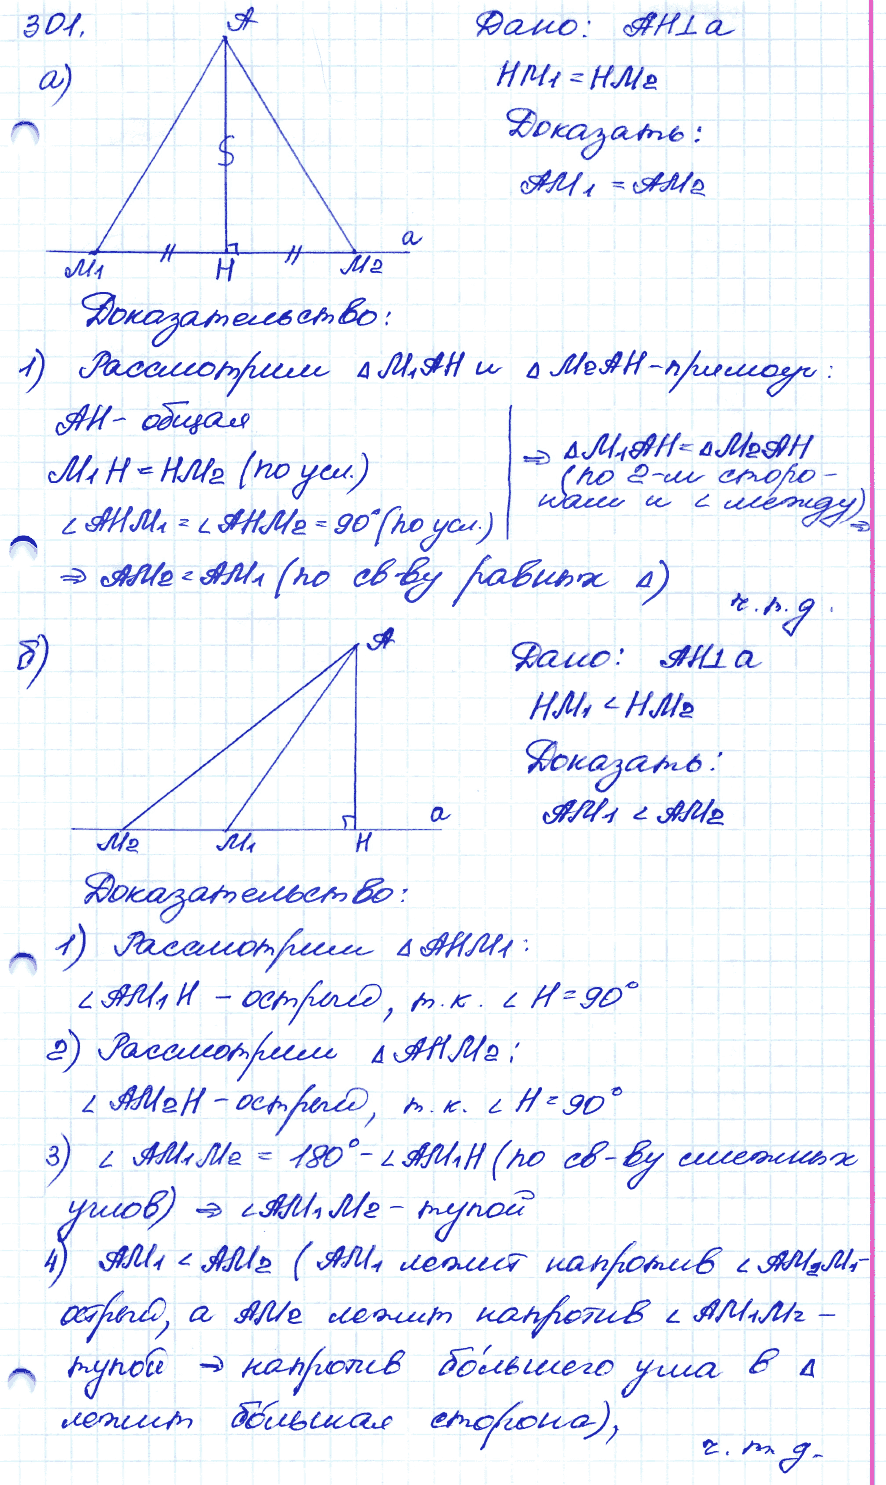 301.
а)
A
M1
H
M2
a
Дано: AH⊥a
HM1 = HM2
Доказать:
AM1 = AM2
Доказательство:
1) Рассмотрим ΔM1AH и ΔM2AH - прямоуг:
AH - общая
M1H = HM2 (по усл.)
∠AHM1 = ∠AHM2 = 90° (по усл.)
⇒ ΔM1AH = ΔM2AH
(по 2-м сторо-
нами и ∠ между)
⇒
⇒ AM2 = AM1 (по св-ву равных Δ)
ч.т.д.
б)
A
M2
M1
H
a
Дано: AH⊥a
HM1 < HM2
Доказать:
AM1 < AM2
Доказательство:
1) Рассмотрим ΔAHM1:
∠AM1H - острый, т.к. ∠H = 90°
2) Рассмотрим ΔAHM2:
∠AM2H - острый, т.к. ∠H = 90°
3) ∠AM1M2 = 180° - ∠AM1H (по св-ву смежных
углов) ⇒ ∠AM1M2 - тупой
4) AM1 < AM2 (AM1 лежит напротив ∠AM2M1-
острый, а AM2 лежит напротив ∠AM1M2 -
тупой ⇒ напротив бо́льшего угла в Δ
лежит бо́льшая сторона),
ч.т.д.